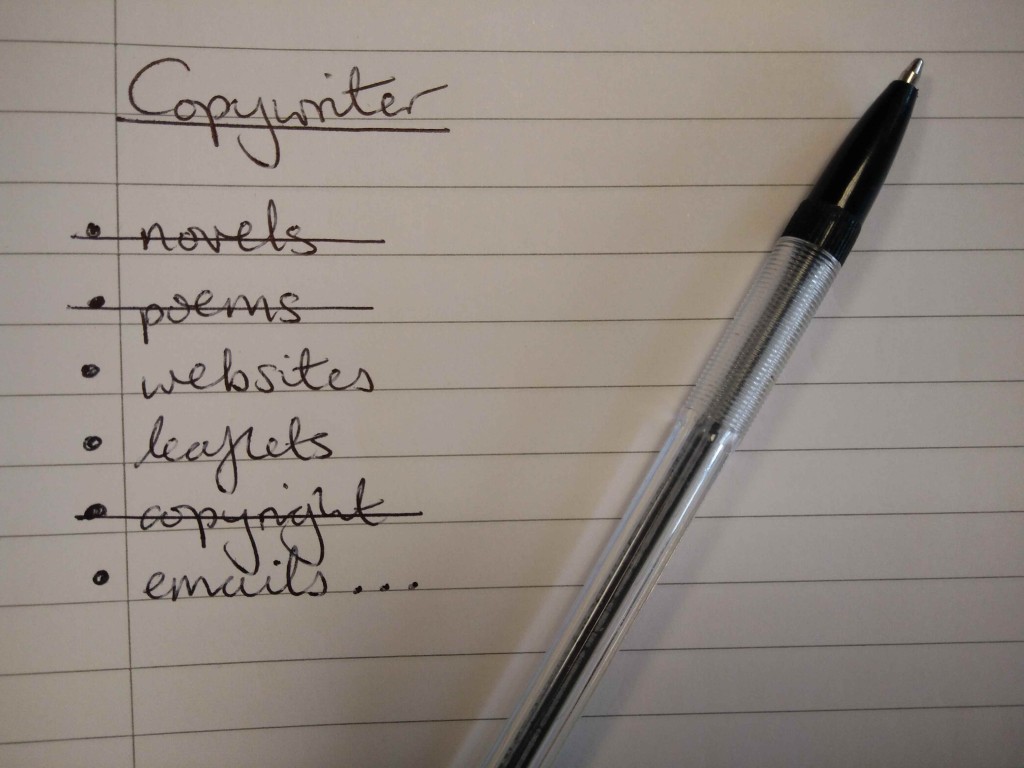 Copywriter
• novels
• poems
• websites
• leaflets
• copyright
• emails...